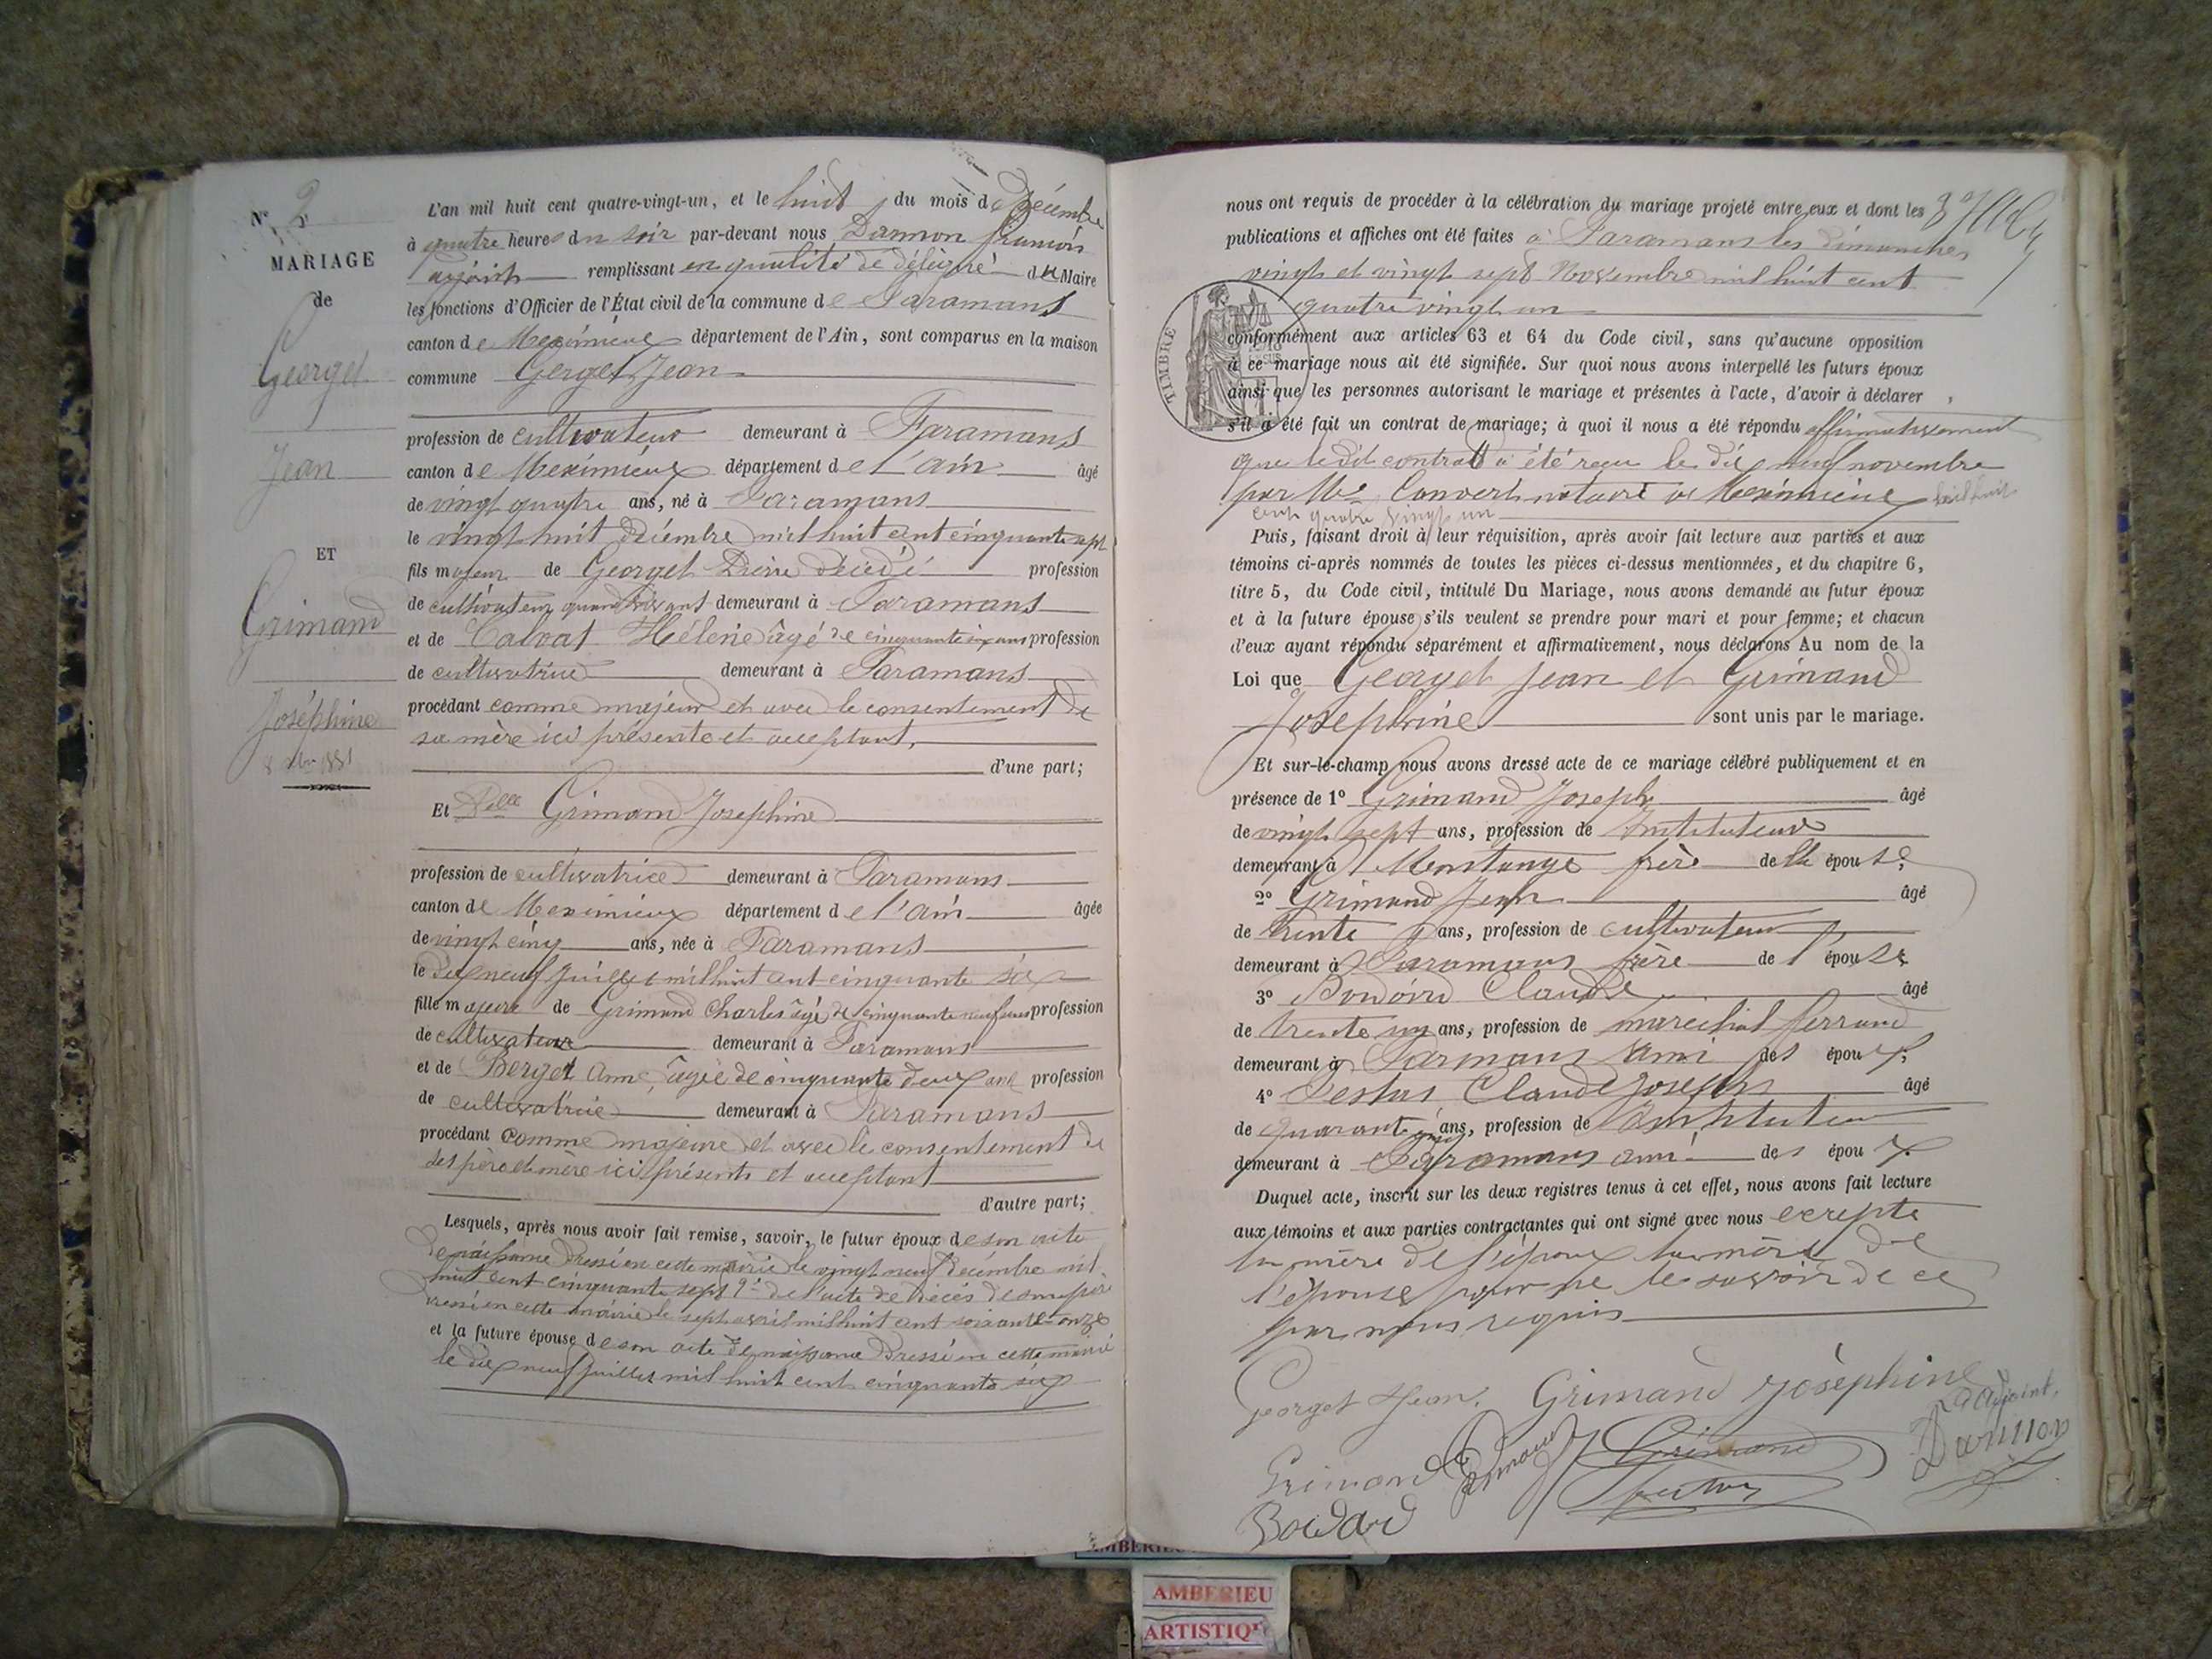 N° 2
MARIAGE
de
Georget
Jean
ET
Grimand
Joséphine
8 xbre 1881
L'an mil huit cent quatre-vingt-un, et le huit du mois de Décembre
à quatre heures du soir par-devant nous Darmon françois
adjoint remplissant en qualité de délégué du Maire
les fonctions d'Officier de l'État civil de la commune de Faramans
canton de Meximieux département de l'Ain, sont comparus en la maison
commune Gerget Jean
profession de cultivateur demeurant à Faramans
canton de Meximieux département de l'ain âgé
de vingt quatre ans, né à Faramans
le vingt huit décembre mil huit cent cinquante sept
fils majeur de Georget Pierre décédé profession
de cultivateur quand vivant demeurant à Faramans
et de Calvat Hélène âgé de cinquante six ans profession
de cultivatrice demeurant à Faramans
procédant comme majeur et avec le consentement de
sa mère ici présente et acceptant,
d'une part;
Et Delle Grimand Josephine
profession de cultivatrice demeurant à Faramans
canton de Meximieux département de l'ain âgée
de vingt cinq ans, née à Faramans
le dix neuf juillet mil huit cent cinquante six
fille majeure de Grimand Charles âgé de cinquante neuf ans profession
de cultivateur demeurant à Faramans
et de Berget Anne, âgée de cinquante deux ans profession
de cultivatrice demeurant à Faramans
procédant comme majeure et avec le consentement de
ses père et mère ici présents et acceptant
d'autre part;
Lesquels, après nous avoir fait remise, savoir, le futur époux de son acte
de naissance dressé en cette mairie le vingt neuf décembre mil
huit cent cinquante sept 2° de l'acte de décès de son père
dressé en cette mairie le sept avril mil huit cent soixante-onze
et la future épouse de son acte de naissance dressé en cette mairie
le dix neuf juillet mil huit cent cinquante six
nous ont requis de procéder à la célébration du mariage projeté entre eux et dont les
publications et affiches ont été faites à Faramans les dimanches
vingt et vingt sept Novembre mil huit cent
quatre vingt un
TIMBRE
conformément aux articles 63 et 64 du Code civil, sans qu'aucune opposition
à ce mariage nous ait été signifiée. Sur quoi nous avons interpellé les futurs époux
ainsi que les personnes autorisant le mariage et présentes à l'acte, d'avoir à déclarer
s'il a été fait un contrat de mariage; à quoi il nous a été répondu affirmativement
que le dit contrat a été reçu le dix neuf novembre
par Me Convert notaire à Meximieux mil huit
cent quatre vingt un
Puis, faisant droit à leur réquisition, après avoir fait lecture aux parties et aux
témoins ci-après nommés de toutes les pièces ci-dessus mentionnées, et du chapitre 6,
titre 5, du Code civil, intitulé Du Mariage, nous avons demandé au futur époux
et à la future épouse s'ils veulent se prendre pour mari et pour femme; et chacun
d'eux ayant répondu séparément et affirmativement, nous déclarons Au nom de la
Loi que Georget Jean et Grimand
Josephine sont unis par le mariage.
Et sur-le-champ nous avons dressé acte de ce mariage célébré publiquement et en
présence de 1° Grimand Joseph âgé
de vingt sept ans, profession de Instituteur
demeurant à frère de l'épouse;
2° Grimand Jean âgé
de trente ans, profession de cultivateur
demeurant à Faramans frère de l'épouse
3° Claude âgé
de trente un ans, profession de marechal ferrand
demeurant à Farmans ami des époux;
4° Claude Joseph âgé
de quarante cinq ans, profession de instituteur
demeurant à Faramans ami des époux.
Duquel acte, inscrit sur les deux registres tenus à cet effet, nous avons fait lecture
aux témoins et aux parties contractantes qui ont signé avec nous excepté
la mère de l'époux la mère de
l'épouse pour ne le savoir de ce
par nous requis
Georget Jean. Grimand Joséphine
L'adjoint,
Darmon
Grimand Grimand
Boudard
AMBERIEU
AMBERIEU
ARTISTIQUE